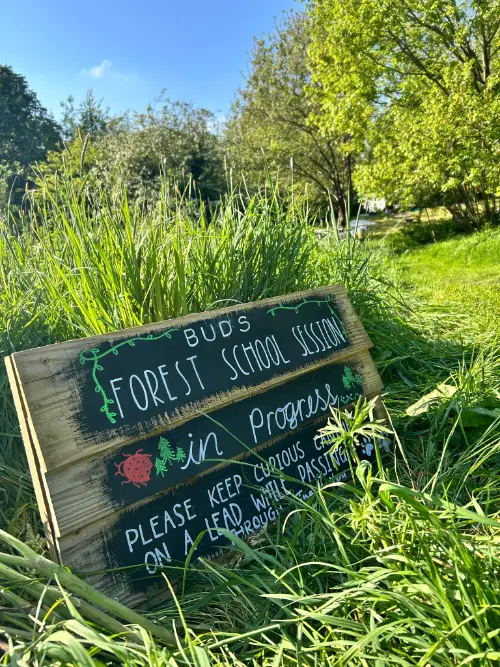 BUD'S
FOREST SCHOOL SESSION
in Progress...
PLEASE KEEP CURIOUS
ON A LEAD WHILST PASSING
THROUGH.